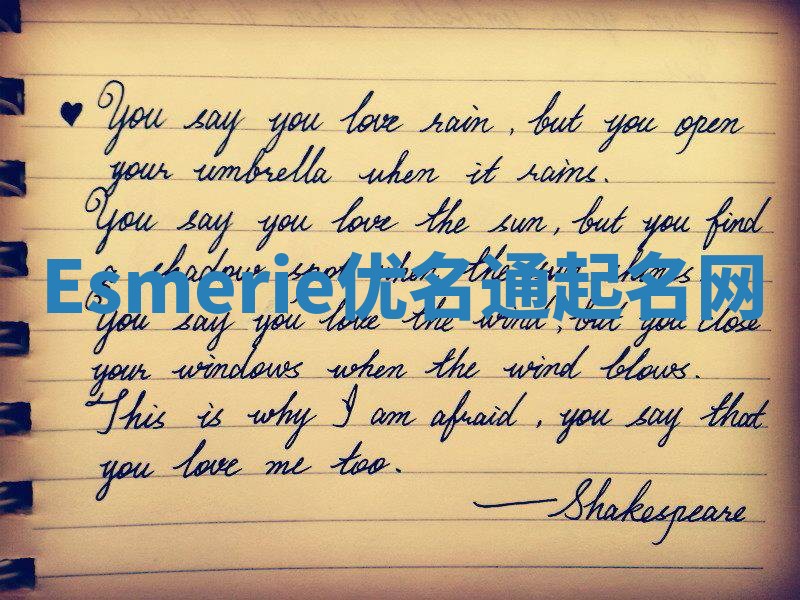 ♥ You say you love rain, but you open
your umbrella when it rains.
You say you love the sun, but you find
a shadow spot when the sun shines
Esmerie优名通起名网
You say you love the wind, but you close
your windows when the wind blows.
This is why I am afraid, you say that
you love me too.
—Shakespeare